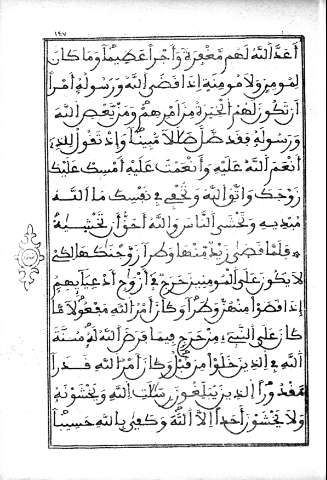 ١٤٧
أَعَدَّ اللَّهُ لَهُم مَّغْفِرَةً وَأَجْراً عَظِيماً وَمَا كَانَ
لِمُومِنٍ وَلَا مُومِنَةٍ إِذَا قَضَى اللَّهُ وَرَسُولُهُ أَمْراً
أَن تَكُونَ لَهُمُ الْخِيَرَةُ مِنَ امْرِهِمْ وَمَنْ يَّعْصِ اللَّهَ
وَرَسُولَهُ فَقَد ضَّلَّ ضَلَالاً مُّبِيناً وَإِذْ تَقُولُ لِلذِي
أَنْعَمَ اللَّهُ عَلَيْهِ وَأَنْعَمْتَ عَلَيْهِ أَمْسِكْ عَلَيْكَ
زَوْجَكَ وَاتَّقِ اللَّهَ وَتُخْفِي فِي نَفْسِكَ مَا اللَّهُ
مُبْدِيهِ وَتَخْشَى النَّاسَ وَاللَّهُ أَحَقُّ أَن تَخْشَيٰهُ
فَلَمَّا قَضَى زَيْدٌ مِّنْهَا وَطَراً زَوَّجْنَٰكَهَا لِكَيْ
لَا يَكُونَ عَلَى الْمُومِنِينَ حَرَجٌ فِي أَزْوَٰجِ أَدْعِيَائِهِمُ
إِذَا قَضَوْا مِنْهُنَّ وَطَراً وَكَانَ أَمْرُ اللَّهِ مَفْعُولاً مَّا
كَانَ عَلَى النَّبِيءِ مِنْ حَرَجٍ فِيمَا فَرَضَ اللَّهُ لَهُ سُنَّةَ
اللَّهِ فِي الذِينَ خَلَوْا مِن قَبْلُ وَكَانَ أَمْرُ اللَّهِ قَدَراً
مَّقْدُوراً الذِينَ يُبَلِّغُونَ رِسَٰلَٰتِ اللَّهِ وَيَخْشَوْنَهُ
وَلَا يَخْشَوْنَ أَحَداً اِلَّا اللَّهَ وَكَفَى بِاللَّهِ حَسِيباً